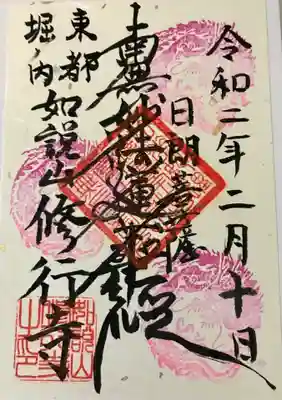 令和二年二月十日
日朗菩薩
南無妙法蓮華経
東都
堀ノ内
如説山修行寺